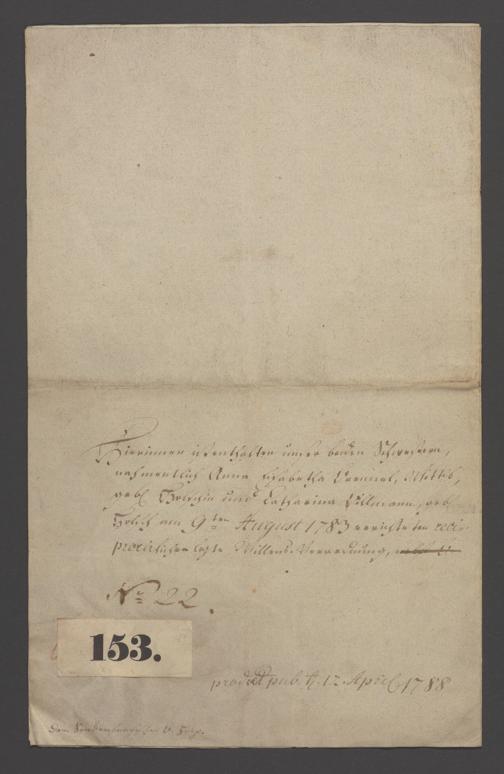 Hierinnen ist enthalten unser beiden Schwestern,
nahmentlich Anna Elisabetha Wittib,
und Catharina Villmann, geb.
am 9ten August 1783 errichtete reci-
procirlichen letzte Willens Verordnung,
No 22.
153.
prod et pub. d. 12. April 1788